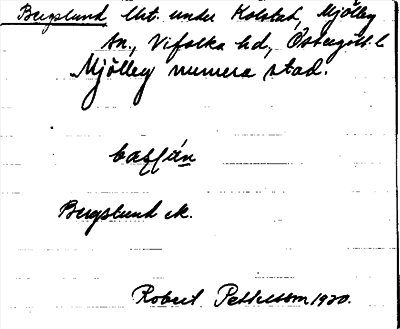 Bergslund lht. under Kolstad, Mjölby
sn., Vifolka hd, Östergötl. l
Mjölby numera stad.
Bergslund ek.
Robert Pettersson 1920.